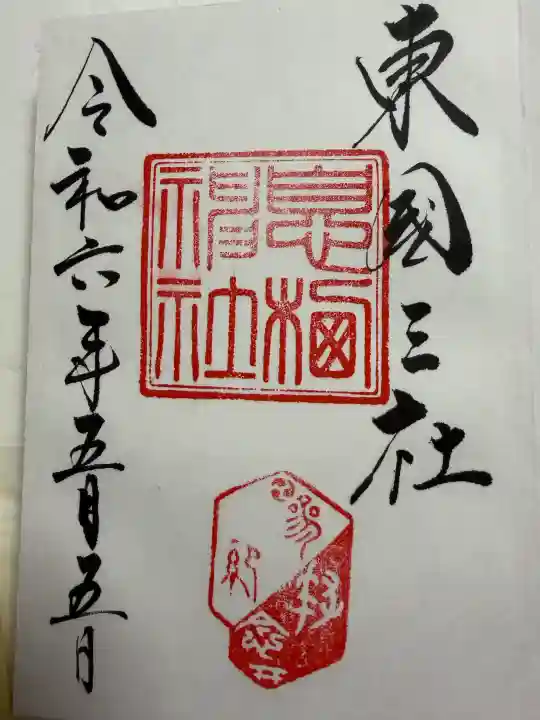 東國三社
息栖神社
参拝
令和六年五月五日